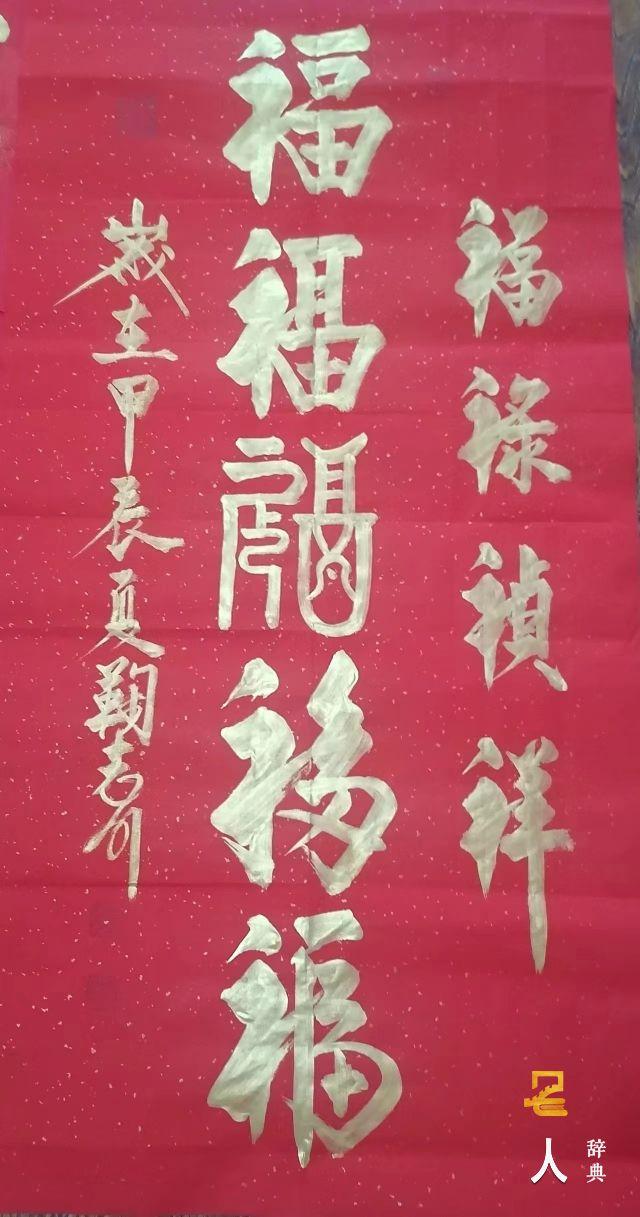 福禄禎祥
福福福福福
歲在甲辰夏鞠志
人
辞典